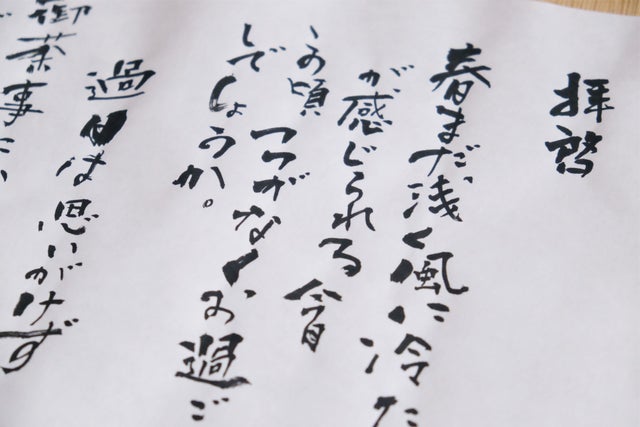 拝啓
春まだ浅く風に冷た
が感じられる今日
この頃つつがなくお過ご
しでしょうか。
過日は思いがけず
御茶事に